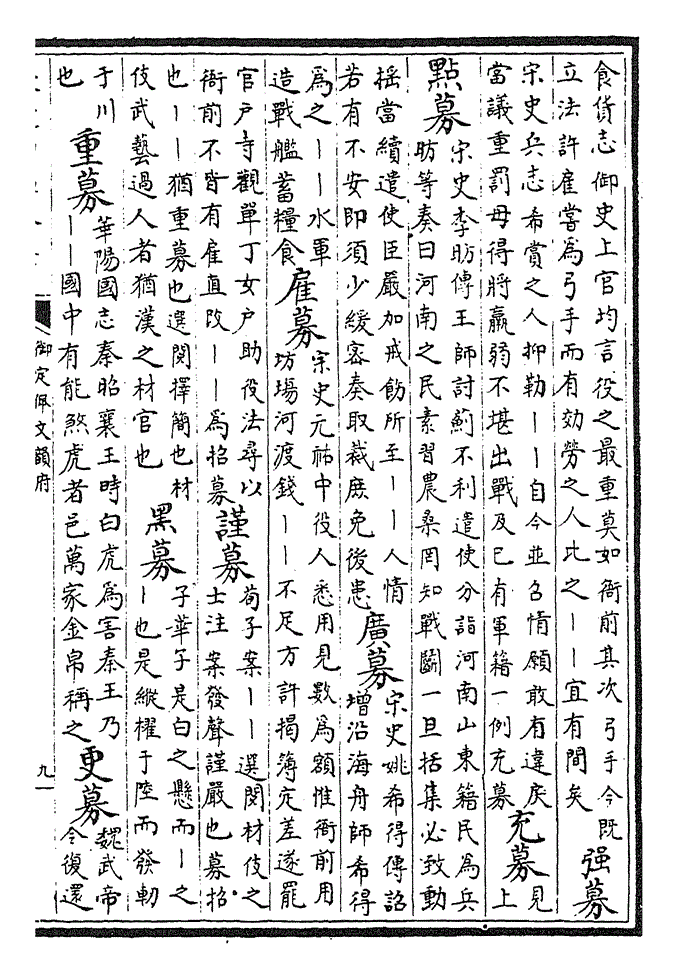 食貨志御史上官均言役之最重莫如衙前其次弓手今既
立法許雇嘗為弓手而有効勞之人比之丨丨宜有間矣
强募
宋史兵志希賞之人抑勒丨丨自今並召情願敢有違戾
當議重罰毋得將羸弱不堪出戰及已有軍籍一例充募
充募
見
上
點募
宋史李昉傳王師討薊不利遣使分詣河南山東籍民為兵
昉等奏曰河南之民素習農桑罔知戰鬭一旦括集必致動
揺當續遣使臣嚴加戒飭所至丨丨人情
若有不安即須少緩密奏取裁庶免後患
廣募
宋史姚希得傳詔
增沿海舟師希得
為之丨丨水軍
造戰艦蓄糧食
雇募
宋史元祐中役人悉用見數為額惟衙前用
坊場河渡錢丨丨不足方許揭簿定差遂罷
官户寺觀單丁女户助役法尋以
衙前不皆有雇直改丨丨為招募
謹募
荀子案丨丨選閱材伎之
士注案發聲謹嚴也募招
也丨丨猶重募也選閱擇簡也材
伎武藝過人者猶漢之材官也
黑募
子華子是白之懸而丨之
丨也是縱櫂于陸而發軔
于川
也
重募
華陽國志秦昭襄王時白虎為害秦王乃
丨丨國中有能煞虎者邑萬家金帛稱之
更募
魏武帝
令復還
御定佩文韻府
九